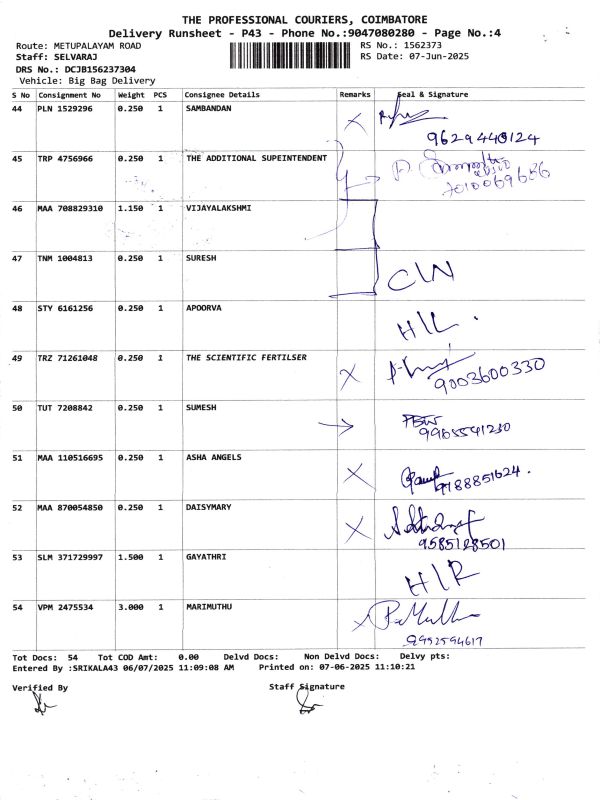 THE PROFESSIONAL COURIERS, COIMBATORE
Delivery Runsheet - P43 - Phone No.:9047080280 - Page No.:4
Route: METUPALAYAM ROAD RS No.: 1562373
Staff: SELVARAJ RS Date: 07-Jun-2025
DRS No.: DCJB156237304
Vehicle: Big Bag Delivery
S No Consignment No Weight PCS Consignee Details Remarks Seal & Signature
44 PLN 1529296 0.250 1 SAMBANDAN X
9629440124
45 TRP 4756966 0.250 1 THE ADDITIONAL SUPEINTENDENT
46 MAA 708829310 1.150 1 VIJAYALAKSHMI
47 TNM 1004813 0.250 1 SURESH
C/N
48 STY 6161256 0.250 1 APOORVA
H/L
49 TRZ 71261048 0.250 1 THE SCIENTIFIC FERTILSER X
9003600330
50 TUT 7208842 0.250 1 SUMESH
9965541230
51 MAA 110516695 0.250 1 ASHA ANGELS X
9188851624
52 MAA 870054850 0.250 1 DAISYMARY X
9585128501
53 SLM 371729997 1.500 1 GAYATHRI
H/R
54 VPM 2475534 3.000 1 MARIMUTHU X
9952594617
Tot Docs: 54 Tot COD Amt: 0.00 Delvd Docs: Non Delvd Docs: Delvy pts:
Entered By :SRIKALA43 06/07/2025 11:09:08 AM Printed on: 07-06-2025 11:10:21
Verified By Staff Signature